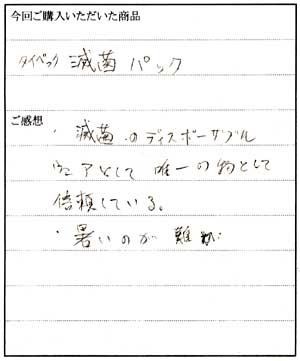 今回ご購入いただいた商品
タイベック 滅菌 パック
ご感想
・滅菌のディスポーサブル
ウェアとして 唯一の物として
信頼している。
・暑いのが 難